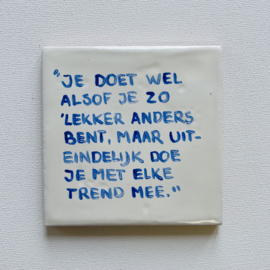 "JE DOET WEL
ALSOF JE ZO
'LEKKER ANDERS
BENT, MAAR UIT-
EINDELIJK DOE
JE MET ELKE
TREND MEE."